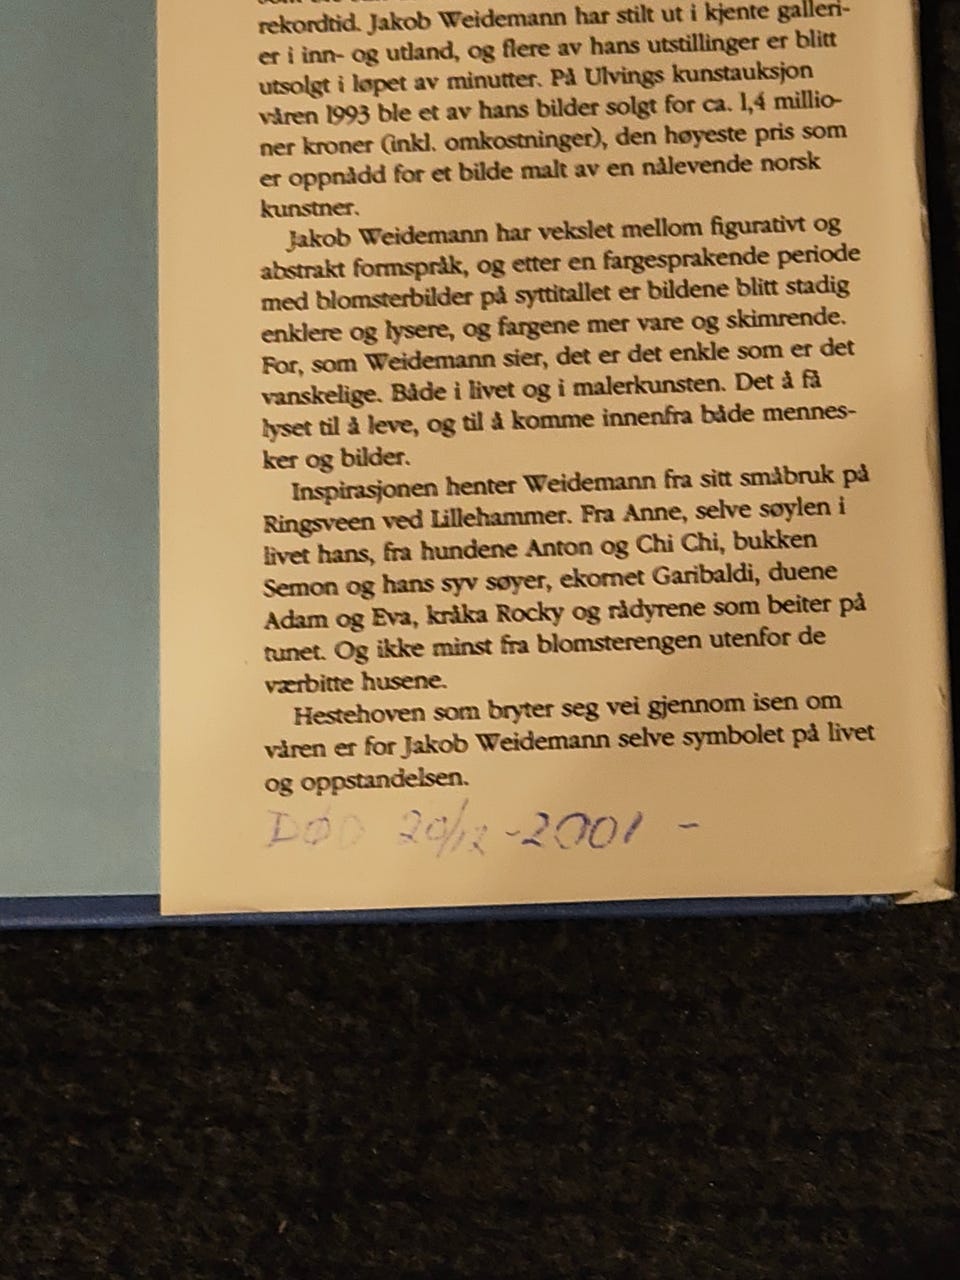 rekordtid. Jakob Weidemann har stilt ut i kjente galleri-
er i inn- og utland, og flere av hans utstillinger er blitt
utsolgt i løpet av minutter. På Ulvings kunstauksjon
våren 1993 ble et av hans bilder solgt for ca. 1,4 millio-
ner kroner (inkl. omkostninger), den høyeste pris som
er oppnådd for et bilde malt av en nålevende norsk
kunstner.
Jakob Weidemann har vekslet mellom figurativt og
abstrakt formspråk, og etter en fargesprakende periode
med blomsterbilder på syttitallet er bildene blitt stadig
enklere og lysere, og fargene mer vare og skimrende.
For, som Weidemann sier, det er det enkle som er det
vanskelige. Både i livet og i malerkunsten. Det å få
lyset til å leve, og til å komme innenfra både mennes-
ker og bilder.
Inspirasjonen henter Weidemann fra sitt småbruk på
Ringsveen ved Lillehammer. Fra Anne, selve søylen i
livet hans, fra hundene Anton og Chi Chi, bukken
Semon og hans syv søyer, ekornet Garibaldi, duene
Adam og Eva, kråka Rocky og rådyrene som beiter på
tunet. Og ikke minst fra blomsterengen utenfor de
værbitte husene.
Hestehoven som bryter seg vei gjennom isen om
våren er for Jakob Weidemann selve symbolet på livet
og oppstandelsen.
DØD 20/12 -2001 -